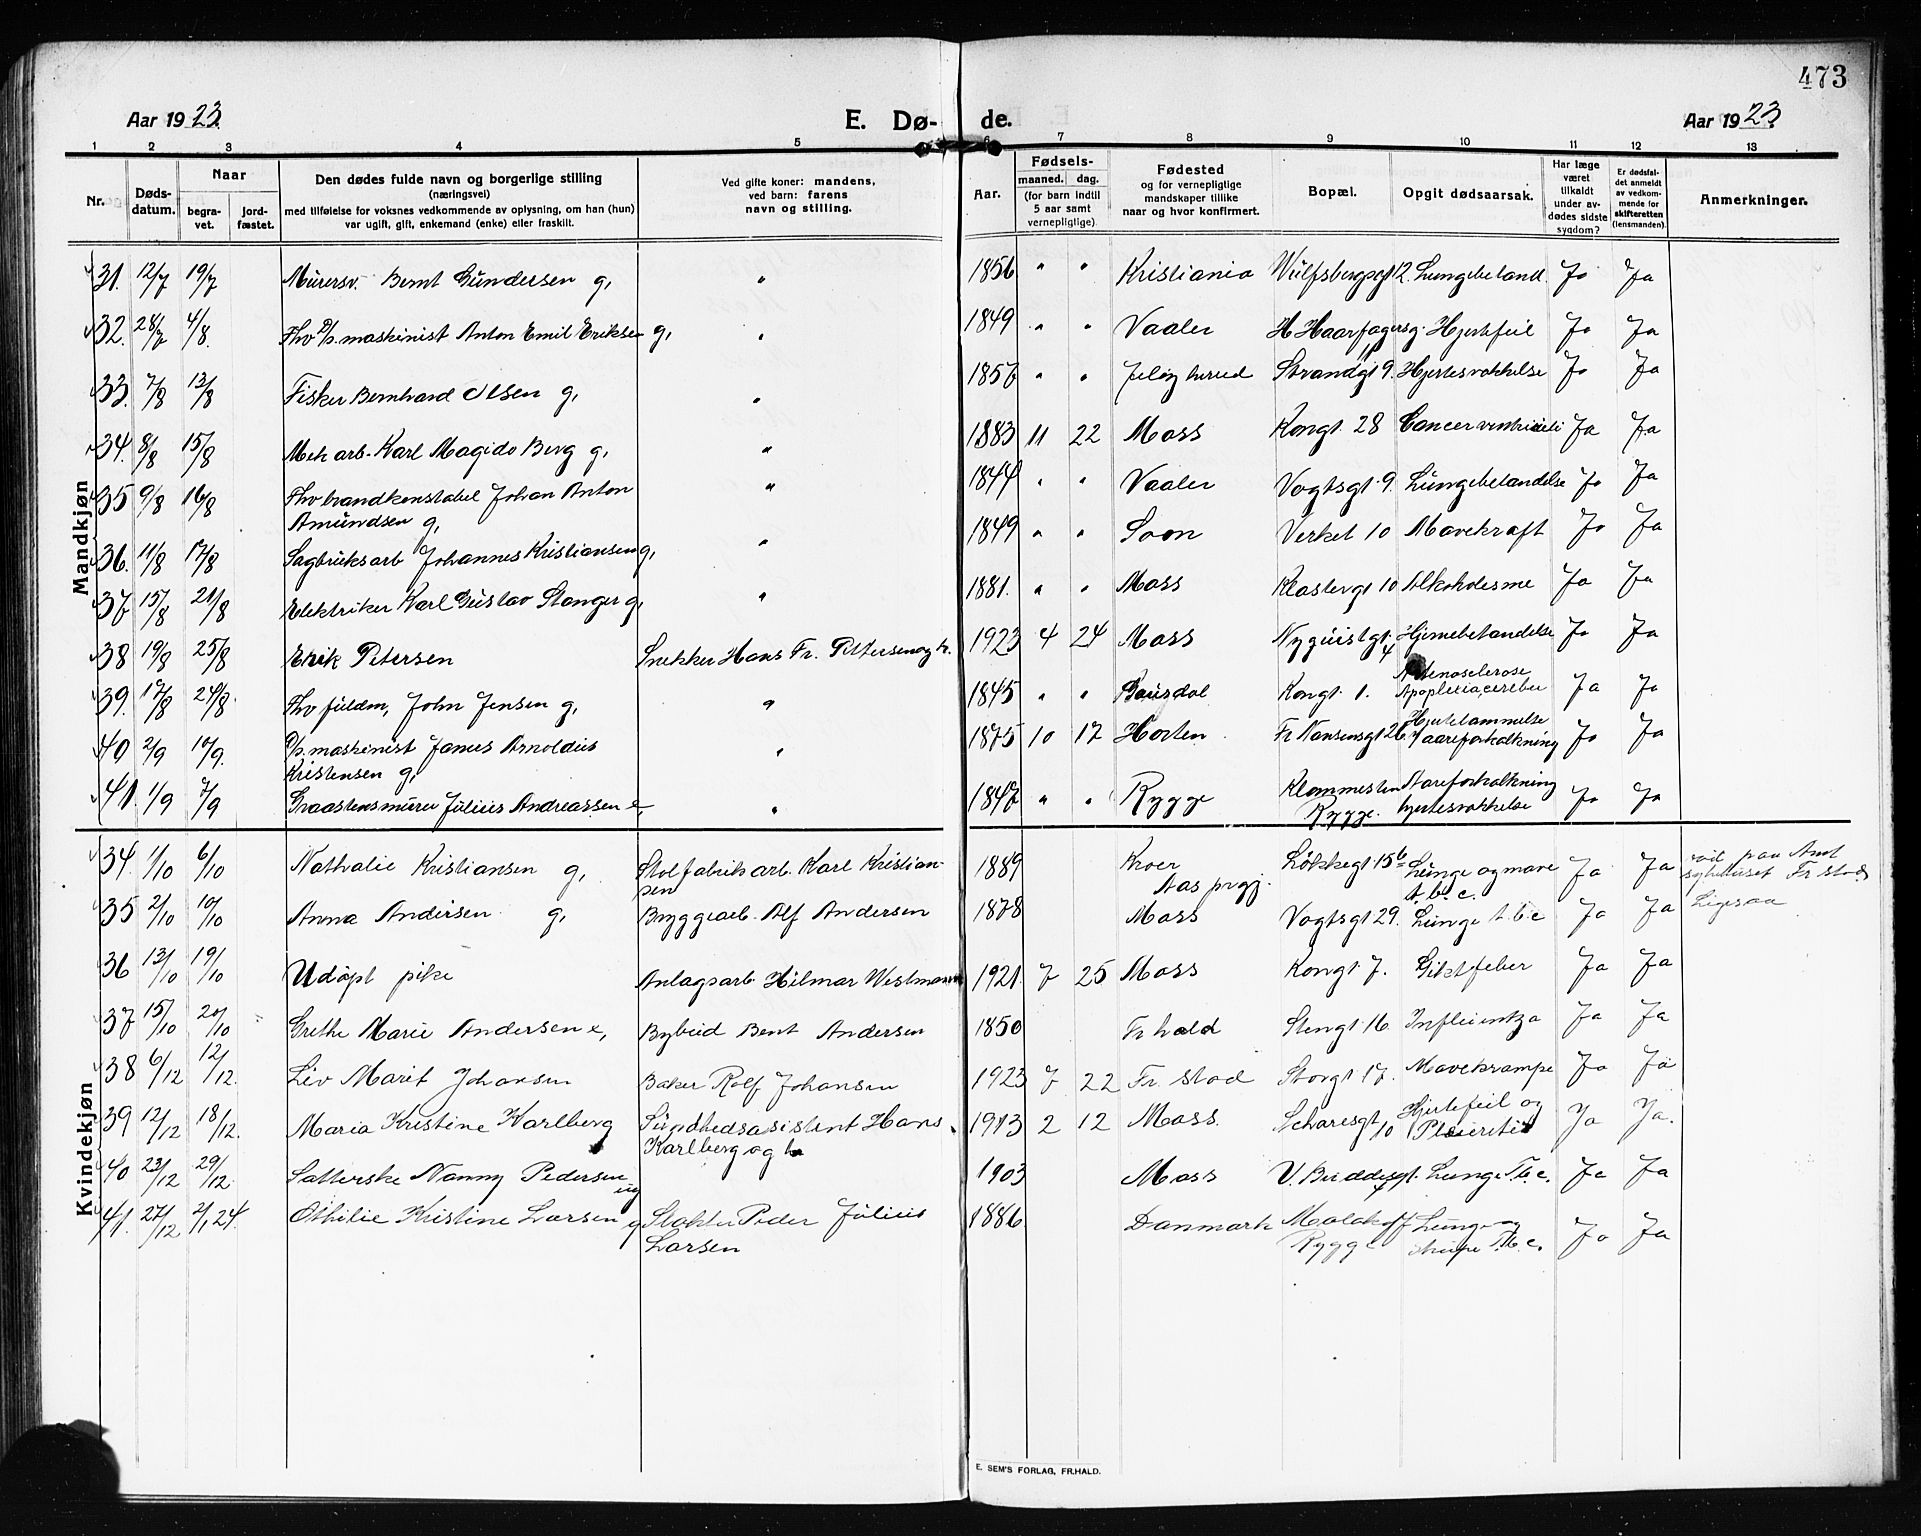 473
Aar 1923. E. Dø- de. Aar 1923.
1 2 3 4 5 6 7 8 9 10 11 12 13
Nr. Døds-datum. Naar begra-vet. jord-fæstet. Den dødes fulde navn og borgerlige stilling (næringsvei) med tilføielse for voksnes vedkommende av oplysning, om han (hun) var ugift, gift, enkemand (enke) eller fraskilt. Ved gifte koner: mandens, ved barn: farens navn og stilling. Aar. Fødsels- maaned. dag. (for barn indtil 5 aar samt vernepligtige). Fødested og for vernepligtige mandskaper tillike naar og hvor konfirmert. Bopæl. Opgit dødsaarsak. Har læge været tilkaldt under av-dødes sidste sygdom? Er dødsfal-det anmeldt av vedkom-mende for skifteretten (lensmanden). Anmerkninger.
Mandkjøn
31. 12/7 19/7 Murersv. Bernt Gundersen g, " 1856 " " Kristiania Wulfsbergsgt 12. Lungebetænd. Ja Ja
32. 28/7 4/8. Fhv D/s. maskinist Anton Emil Eriksen g, " 1849 " " Vaaler H Haarfagersg. Hjertefeil Ja Ja
33. 7/8 13/8 Fisker Bernhard Olsen g, " 1857 " " Jeløy herred Strandgt 9. Hjertesvækkelse Ja Ja
34. 8/8 15/8 Mek arb. Karl Magido Berg g, " 1883 11 22 Moss Kongt. 28 Cancer ventriculi Ja Ja
35 9/8 16/8 Fhv brandkonstabel Johan Anton " 1844 " " Vaaler Vogtsgt. 9. Lungebetændelse Ja Ja
Amundsen g,
36. 11/8 17/8 Sagbruksarb Johannes Kristiansen g, " 1849 " " Soon Verket 10 Mavekræft Ja Ja
37 15/8 21/8 Elektriker Karl Gustav Stanger g, " 1881. " " Moss Klostergt 10 Alkoholisme Ja Ja
38 19/8 25/8 Erik Petersen Snekker Hans Fr. Pettersen og h. 1923 4 24 Moss Nyquistgt. 4 Hjernebetændelse Ja Ja
39. 17/8 24/8. Fhv fuldm, John Jensen g, " 1845 " " Kongt. 1. Arteriosclerose
Apoplexia cerebri Ja Ja
40 2/9 10/9. D/s. maskinist Janus Arnoldus " 1875 10 17 Horten Fr Nansensgt 26 Hjertelammelse
Kristensen g, aareforkalkning Ja Ja
41. 1/9 7/9 Graastensmurer Julius Andreassen e, " 1847 " " Rygge Klommesten Aareforkalkning
Rygge. hjertesvækkelse Ja Ja
Kvindekjøn
34. 1/10 6/10 Nathalie Kristiansen g, Stolfabrik arb. Karl Kristian- 1889 Kroer Løkkegt 15b Lunge og mave Ja Ja død paa Amt
sen Aas prgj. t.b.c. sykehuset Fr stad
35 2/10 10/10 Anna Andersen g, Bryggearb. Alf Andersen 1878 Moss Vogtsgt 29. Lunge t.b.c Ja Ja Ligesaa
36 13/10 19/10 Udøpt pike Anlagsarb Hilmar Westmann 1921 7 25 Moss Kongt. 7. Giktfeber Ja Ja
37 15/10 20/10 Grethe Marie Andersen e, Bybud Bent Andersen 1850 Fr hald Stengt. 16 Influentza Ja Ja
38 6/12 12/12. Liv Marit Johansen Baker Rolf Johansen 1923 7 22 Fr. stad Storgt 17. Mavekrampe Ja Ja
39 12/12 18/12. Maria Kristine Karlberg Sundhedsasistent Hans 1913 2 12 Moss. 10 Hjertefeil og Ja Ja.
Karlberg og h Pleuretit
40 23/12 29/12 Nanny Pedersen ug 1903 Moss V. Lunge T.b.c. Ja Ja
41. 27/12 2/1 24. Othilie Kristine Larsen g Peder Julius 1886. Danmark Malakoff Lunge og Ja Ja
Larsen Rygge strupe T.b.c.
E. SEM'S FORLAG, FR.HALD.